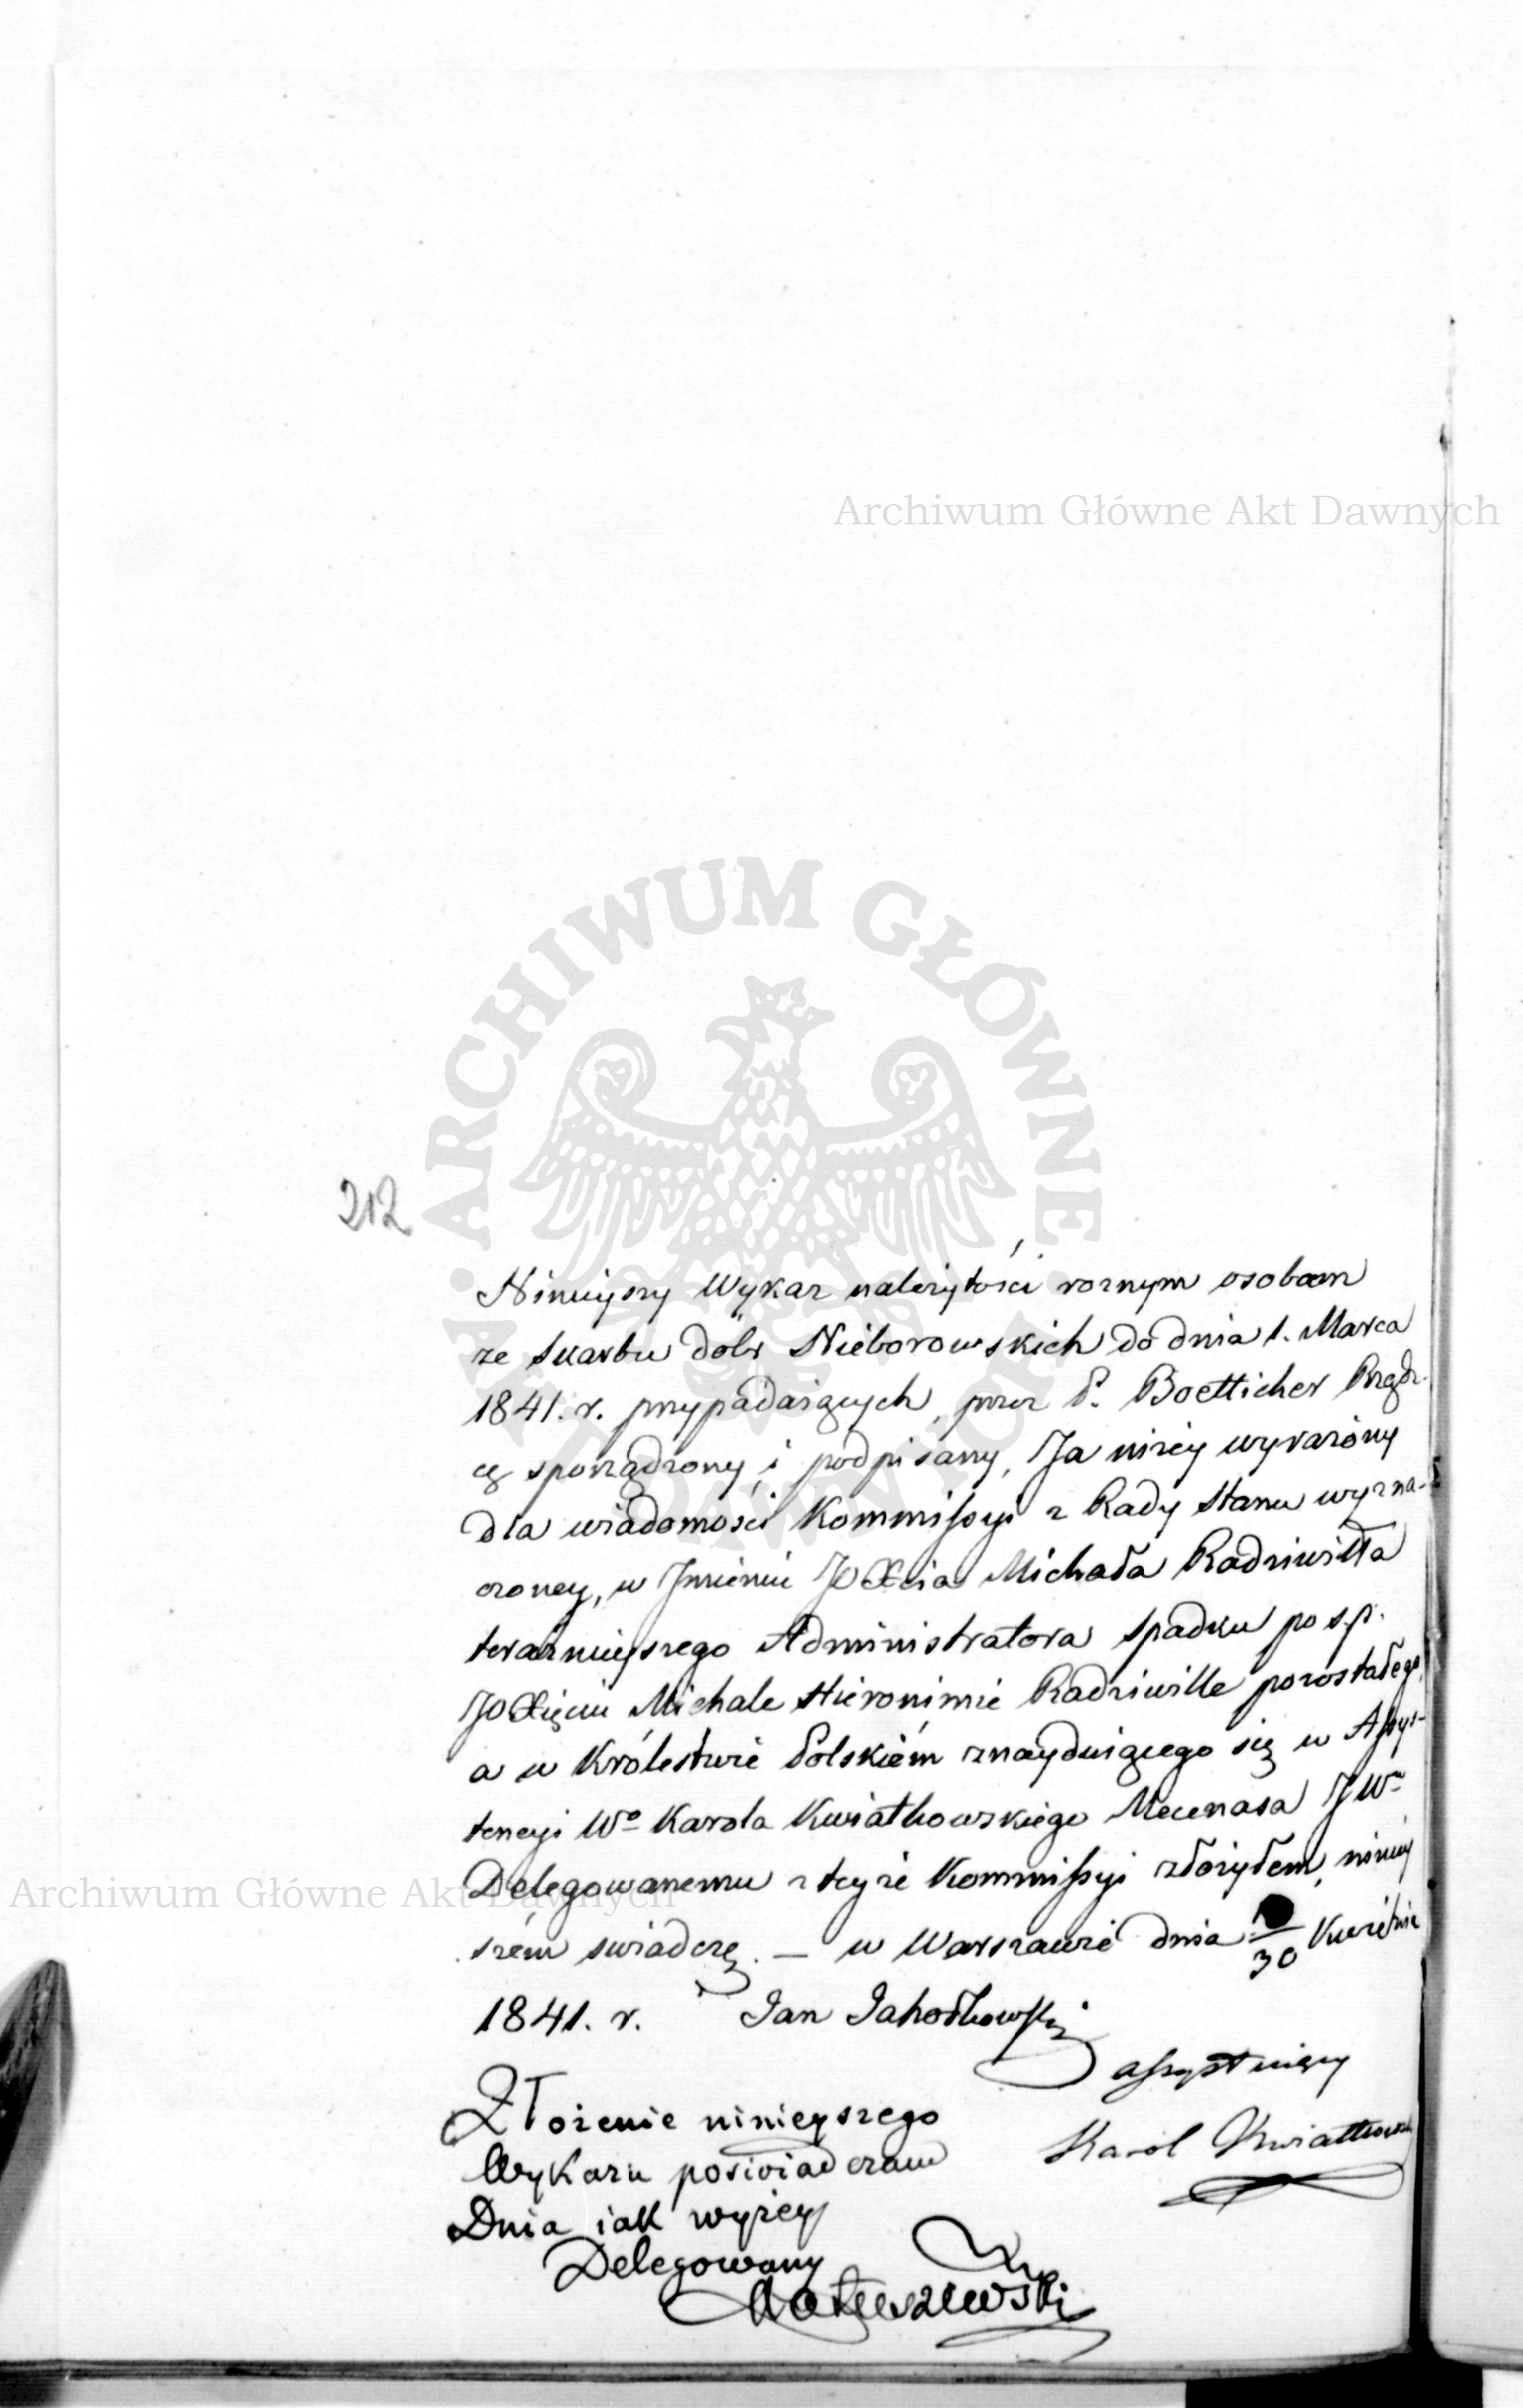 Archiwum Główne Akt Dawnych
ARCHIWUM GŁÓWNE AKT DAWNYCH
212
Ninieyszy Wykaz należytości roznym osobom
ze Skarbu dóbr Nieborowskich do dnia 1. Marca
1841. r. przypadaiących, przez P. Boetticher Rządz-
cę sporządzony, i podpisany, Ja niżey wyrażony
dla wiadomości Kommissyi z Rady Stanu wyzna-
czoney, w Jmieniu JO Xcia Michała Radziwiłła
teraznieyszego Administratora spadku po ś.p.
JO Xięciu Michale Hieronimie Radziwille pozostałego,
a w Królestwie Polskiém znayduiącego się w Assys-
tencyi Wo Karola Kwiatkowskiego Mecenasa JW
Delegowanemu z teyże Kommissyi złożyłem, niniey
szém swiadczę. — w Warszawie dnia /30 Kwietnia
1841. r. Jan
assystuiący
Karol Kwiatkowski
Złożenie ninieyszego
Wykazu poświadczam
Dnia iak wyżey
Delegowany
Mateuszewski
Archiwum Główne Akt Dawnych